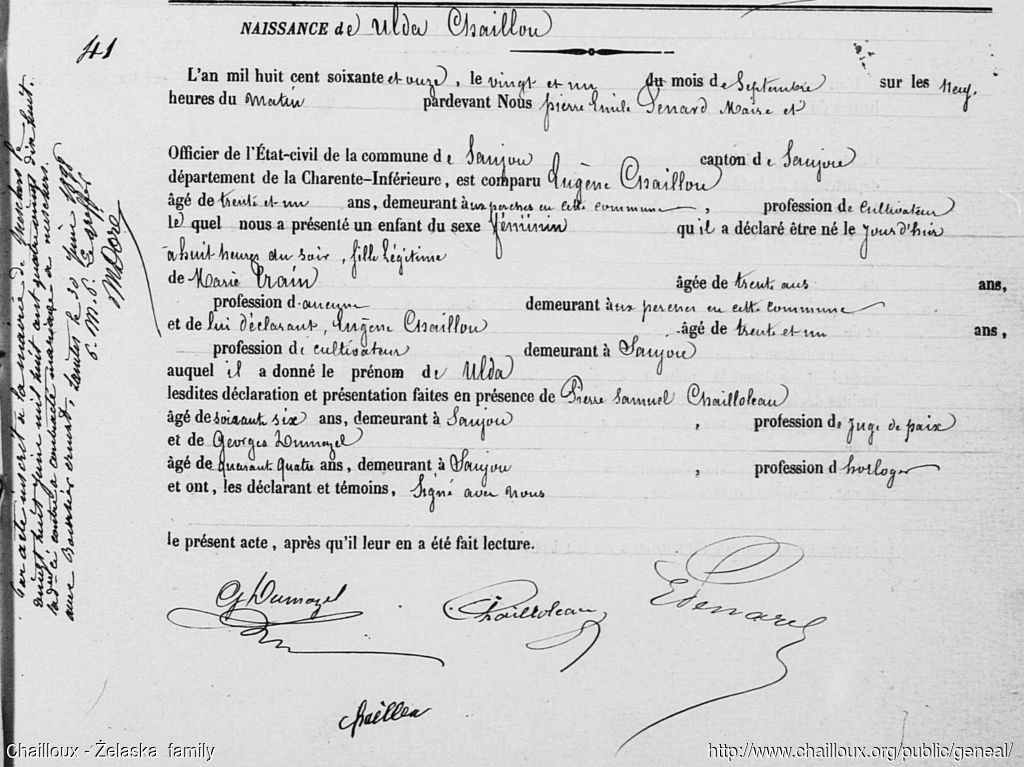 NAISSANCE de Ulda Chaillou
41
L'an mil huit cent soixante et onze, le vingt et un du mois de Septembre sur les neuf
heures du Matin pardevant Nous pierre Emile Penard Maire et
Officier de l'État-civil de la commune de Saujon canton de Saujon
département de la Charente-Inférieure, est comparu Eugène Chaillou
âgé de trente et un ans, demeurant aux perches en cette commune, profession de cultivateur
le quel nous a présenté un enfant du sexe féminin qu'il a déclaré être né le Jour d'hier
à huit heures du soir, fille légitime
de Marie Train âgée de trente ans ans,
profession d'aucune demeurant aux perches en cette commune
et de lui déclarant, Eugène Chaillou âgé de trente et un ans,
profession de cultivateur demeurant à Saujon
auquel il a donné le prénom de Ulda
lesdites déclaration et présentation faites en présence de Pierre Samuel Chailloleau
âgé de soixant six ans, demeurant à Saujon, profession de Juge de paix
et de Georges Dumazel
âgé de quarant quatre ans, demeurant à Saujon, profession d horloger
et ont, les déclarant et témoins, Signé avec nous
le présent acte, après qu'il leur en a été fait lecture.
G Dumazel
Chailloleau
E Penard
chaillou
Par acte inscrit à la mairie de meschers le
vingt huit juin mil huit cent quatre vingt dix huit.
contracté mariage à meschers.
avec ernest, Saintes le 30 Juin 1898
Le greffier
Chailloux - Żelaska family
http://www.chailloux.org/public/geneal/